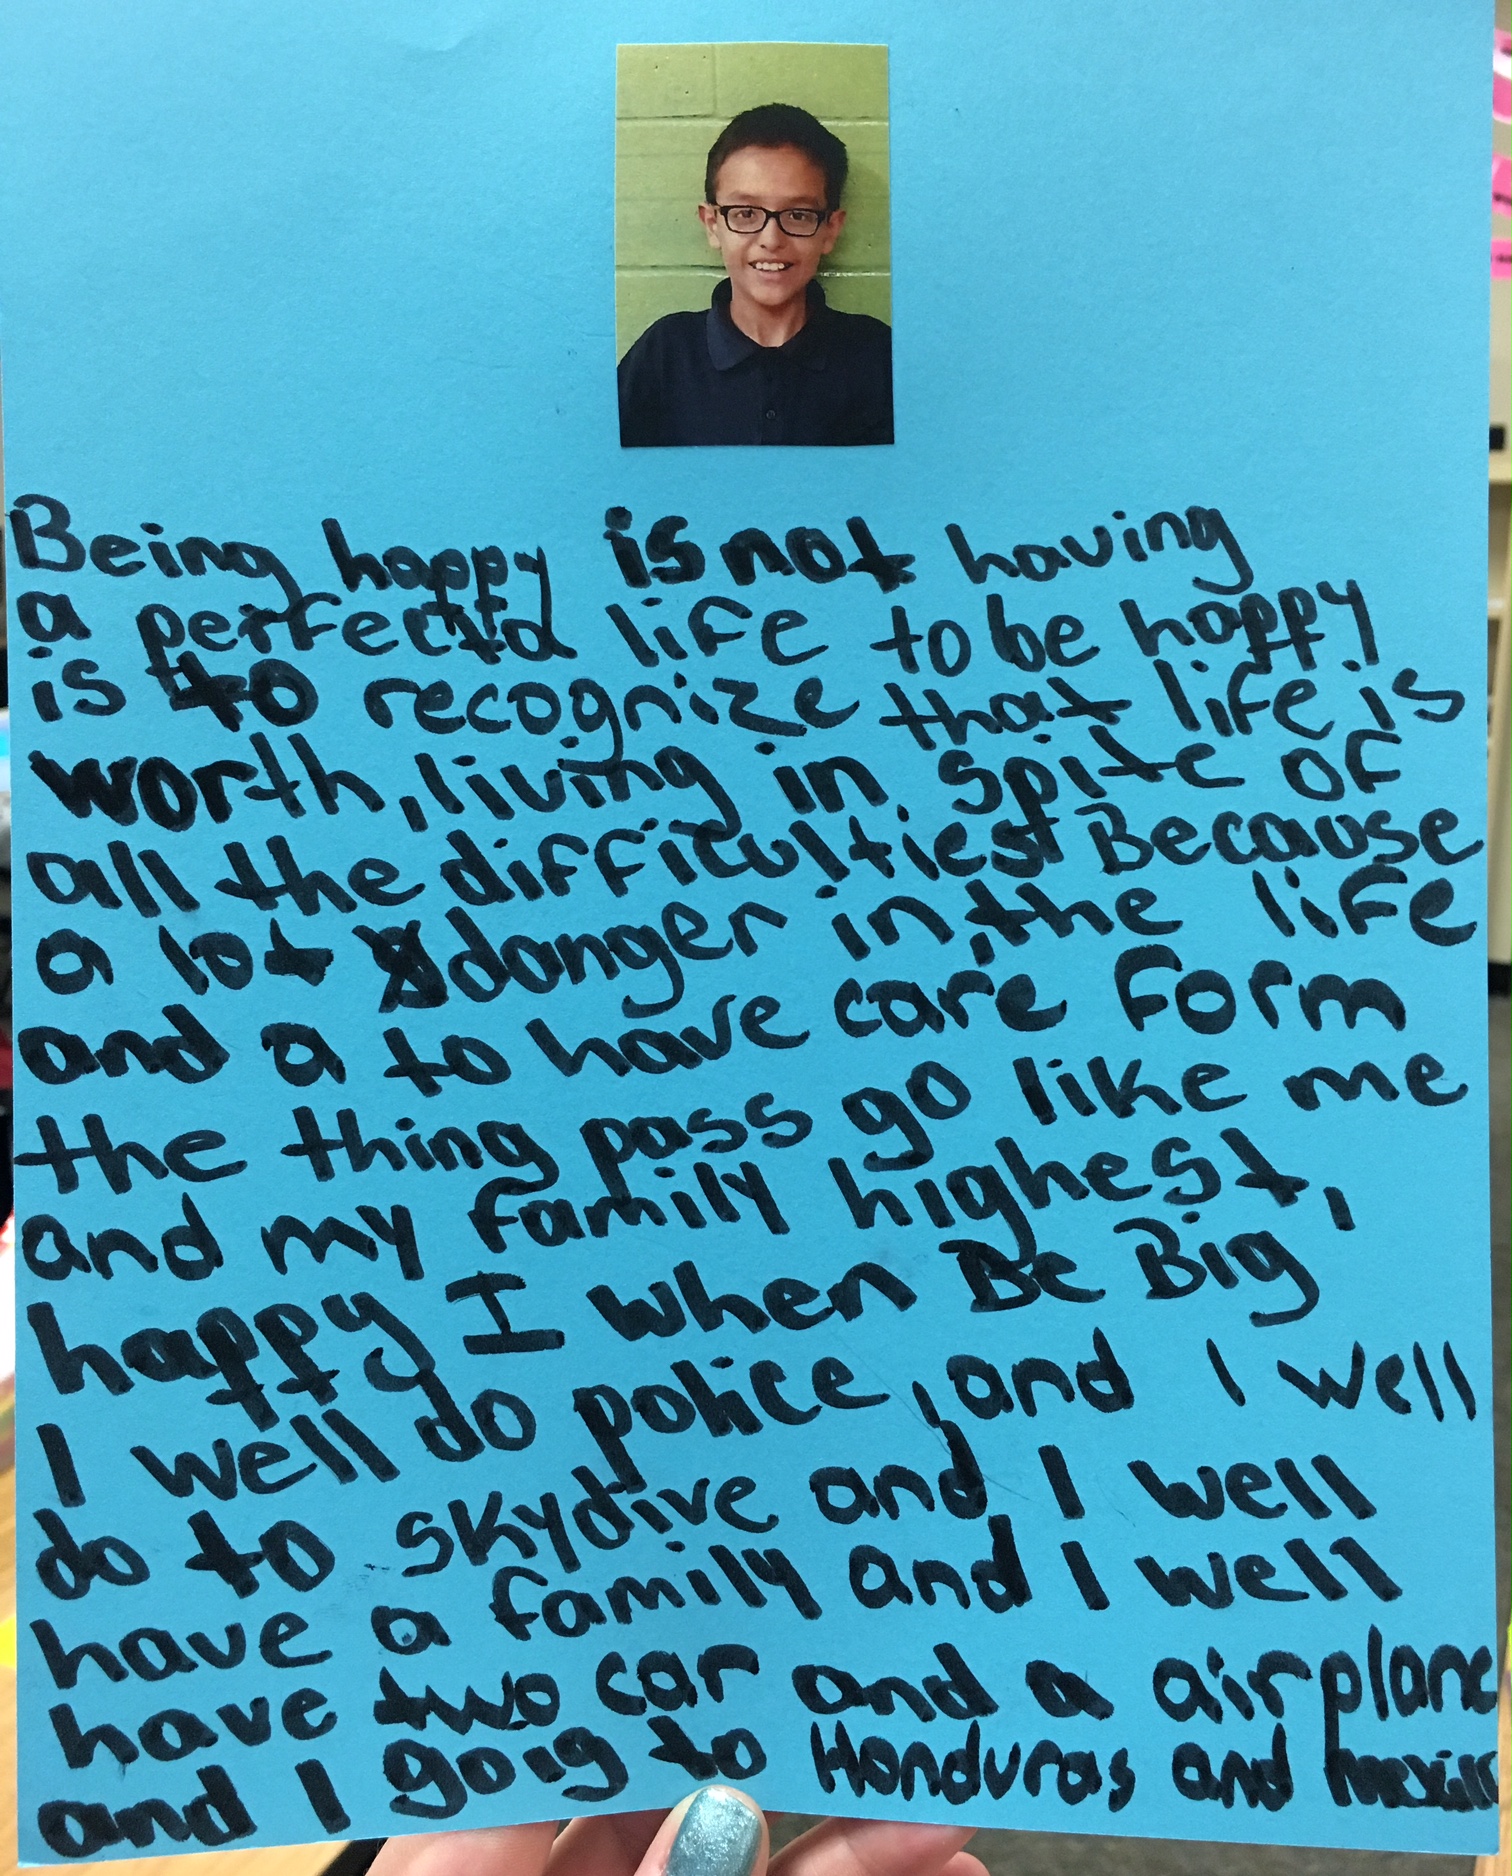 Being happy is not having
a perfectd life to be happy
is to recognize that life is
worth, living in spite of
all the difficulties Because
a lot danger in the life
and a to have care form
the thing pass go like me
and my family highest,
happy I when Be Big,
I well do police, and I well
do to skydive and I well
have a family and I well
have two car and a airplane
and I goig to Honduras and